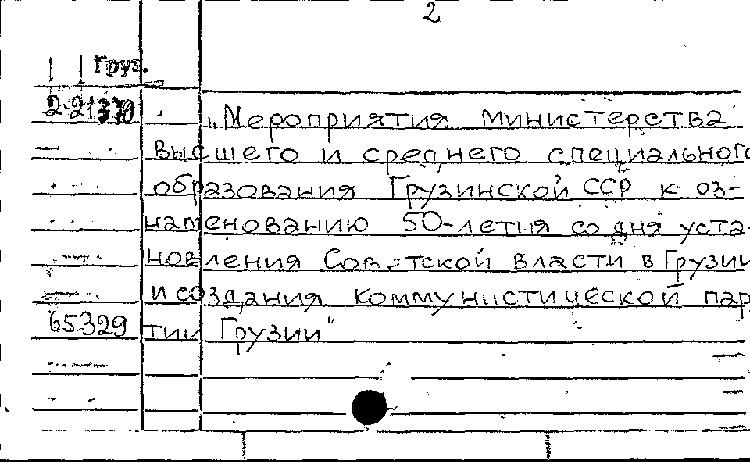 2
Груз.
2-21370
„Мероприятия министерства
высшего и среднего специального
образования Грузинской ССР к оз-
наменованию 50-летия со дня уста-
новления Советской власти в Грузии
и создания коммунистической пар
тии Грузии"
65329